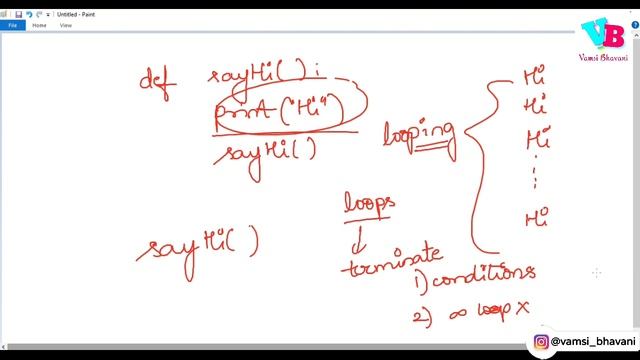 Untitled - Paint
VB
Vamsi Bhavani
def sayHi():
print("Hi")
sayHi()
looping
Hi
Hi
Hi
Hi
sayHi()
loops
terminate
1) conditions
2) ∞ loop x
@vamsi_bhavani